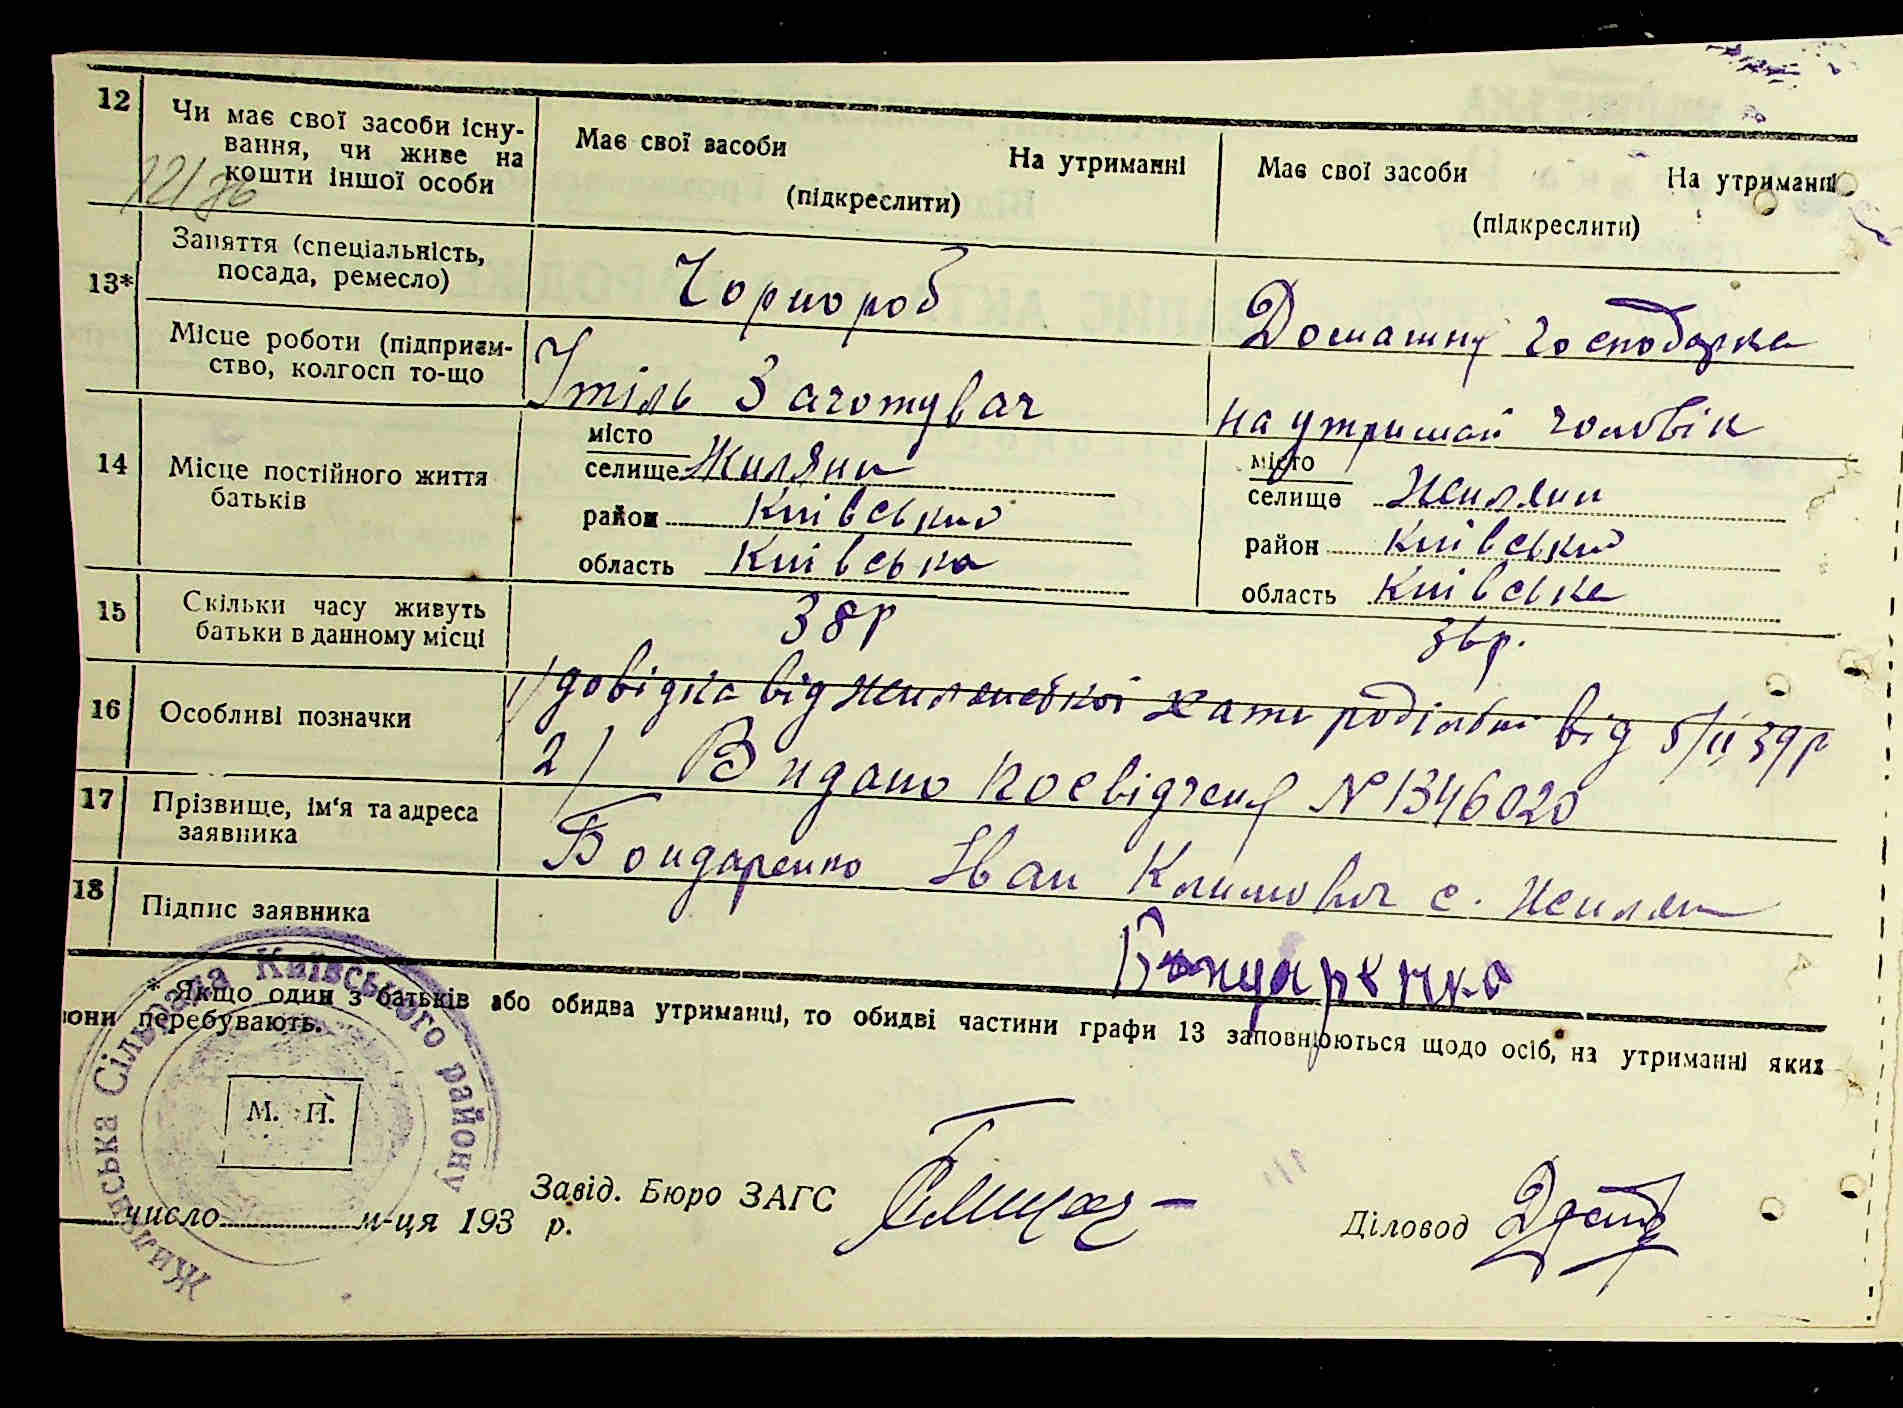 12
Чи має свої засоби існу-
вання, чи живе на
кошти іншої особи
12/86
Має свої засоби На утриманні
(підкреслити)
Має свої засоби На утриманні
(підкреслити)
13*
Заняття (спеціальність,
посада, ремесло)
Чорнороб
Домашня господарка
Місце роботи (підприєм-
ство, колгосп то-що
Утіль Заготувач
на утриман чоловік
14
Місце постійного життя
батьків
місто
селище Жиляни
район Київський
область Київська
місто
селище Жиляни
район Київський
область Київська
15
Скільки часу живуть
батьки в данному місці
38р
36р.
16
Особливі позначки
1/ довідка від Жилянської хати родільні від 5/II 39р
2/ Видано посвідченя № 1346020
17
Прізвище, ім'я та адреса
заявника
Бондаренко Іван Климович с. Жиляни
18
Підпис заявника
Бондаренко
* Якщо один з батьків або обидва утриманці, то обидві частини графи 13 заповнюються щодо осіб, на утриманні яких
вони перебувають.
Жилянська Сільрада Київського району
М. П.
число м-ця 193 р.
Завід. Бюро ЗАГС
Діловод